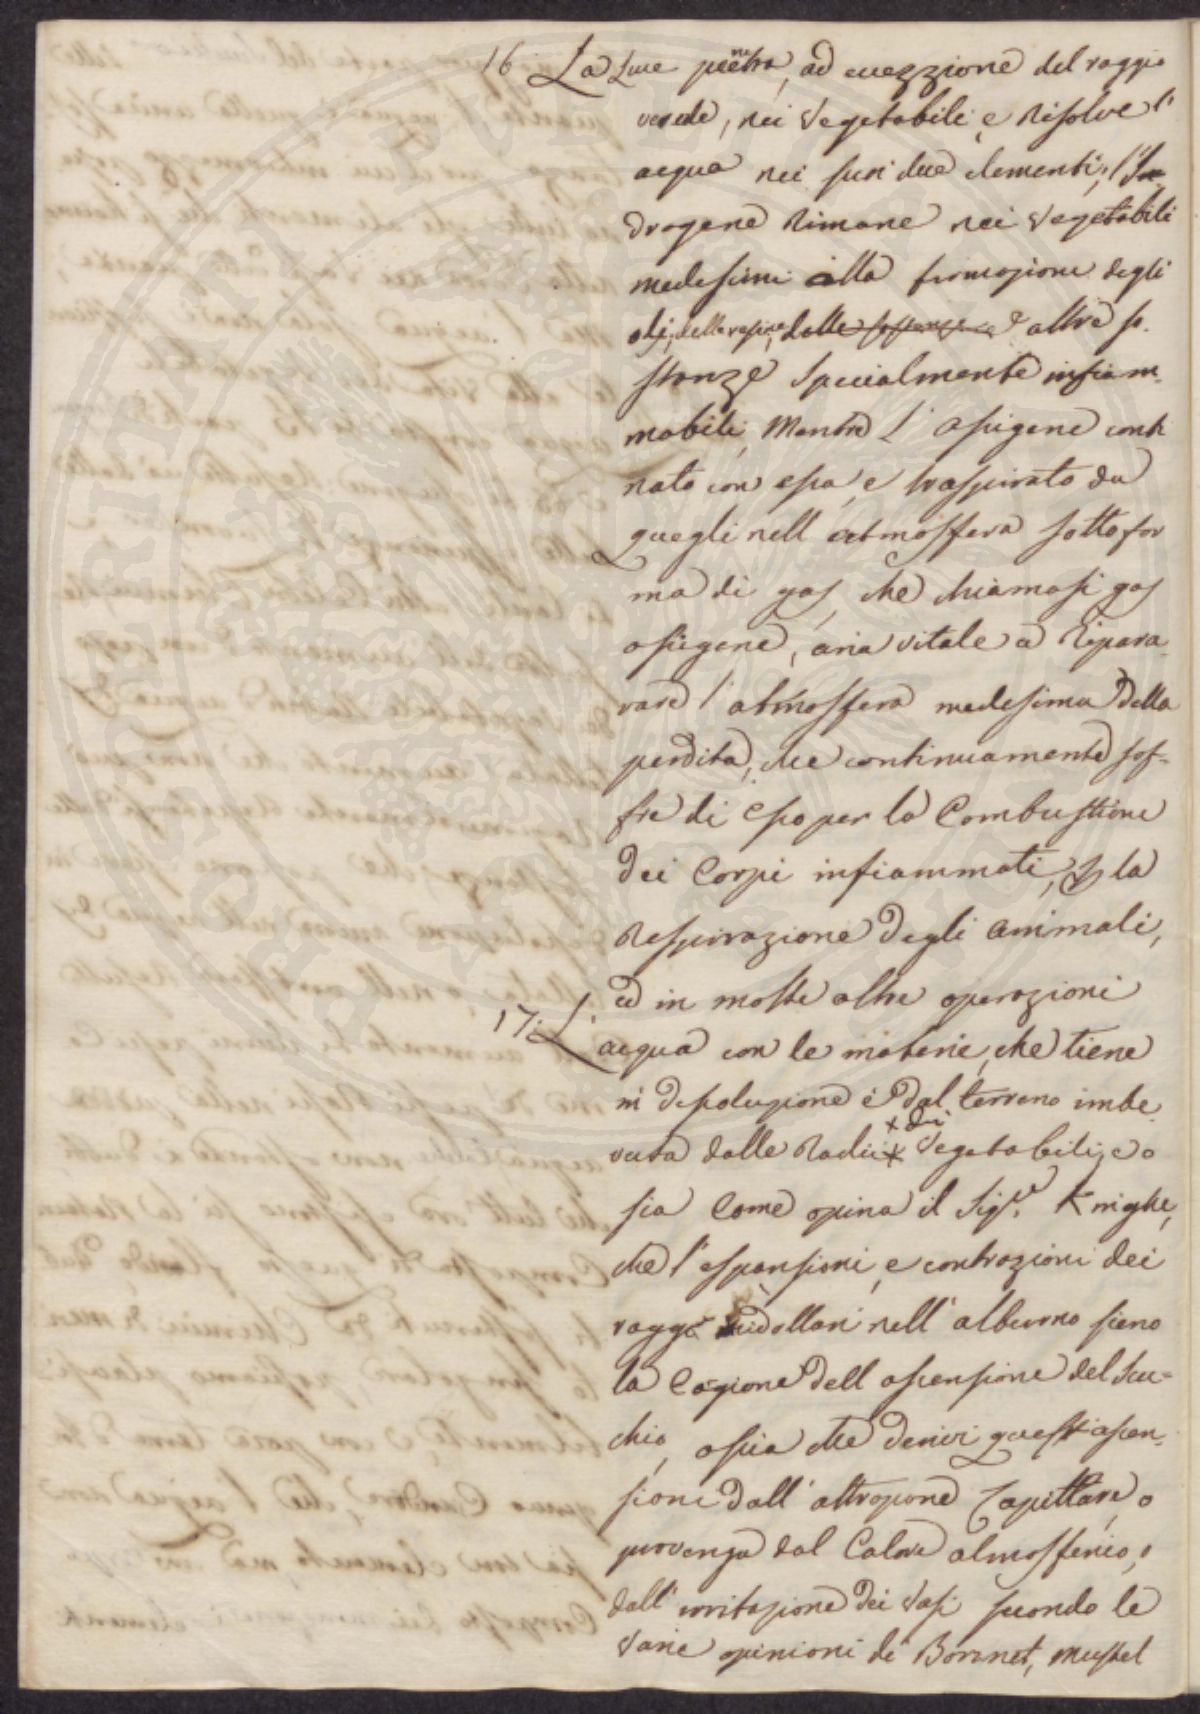 16 La Luce penetra, ad eccezzione del raggio
verde, nei Vegetabili, e Risolve l'
acqua nei suoi due elementi; l'
drogene Rimane nei Vegetabili
medesimi alla formazione degli
olj, delle resine, delle sostanze e altre so-
stanze specialmente infiam-
mabili, Mentre l' ossigene com
nato con essa, è traspirato da
quegli nell atmosffera sotto for
ma di gas, che chiamasi gas
ossigene, aria vitale a Ripara-
rare l' atmosffera medesima della
perdita, che continuamente sof-
fre di esso per la Combustione
dei Corpi infiammati, la
Respirazione degli animali,
ed in molte altre operazioni
17. L'
acqua con le materie, che tiene
in dissoluzione è dal terreno imbe-
vuta dalle Radici dei Vegetabili, e o
sia Come opina il Sig.re Knighe,
che l' espansioni, e contrazioni dei
raggi midollari nell' alburno sieno
la Cagione dell ascensione del Suc-
chio, ossia che derivi quest' ascen-
sione dall' attrazione Capillare, o
provenga dal Calore atmosfferico, o
dall' irritazione dei Vasi secondo le
Varie opinioni di Bonnet, Mustel